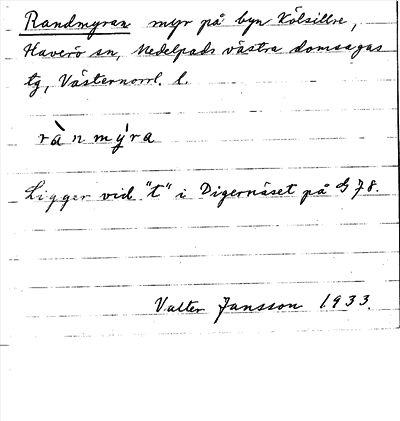 Randmyran myr på byn Kölsillre,
Haverö sn, Medelpads västra domsagas
tg, Västernorrl. l.
rànmýra
Ligger vid "t" i Digernäset på G 78.
Valter Jansson 1933.